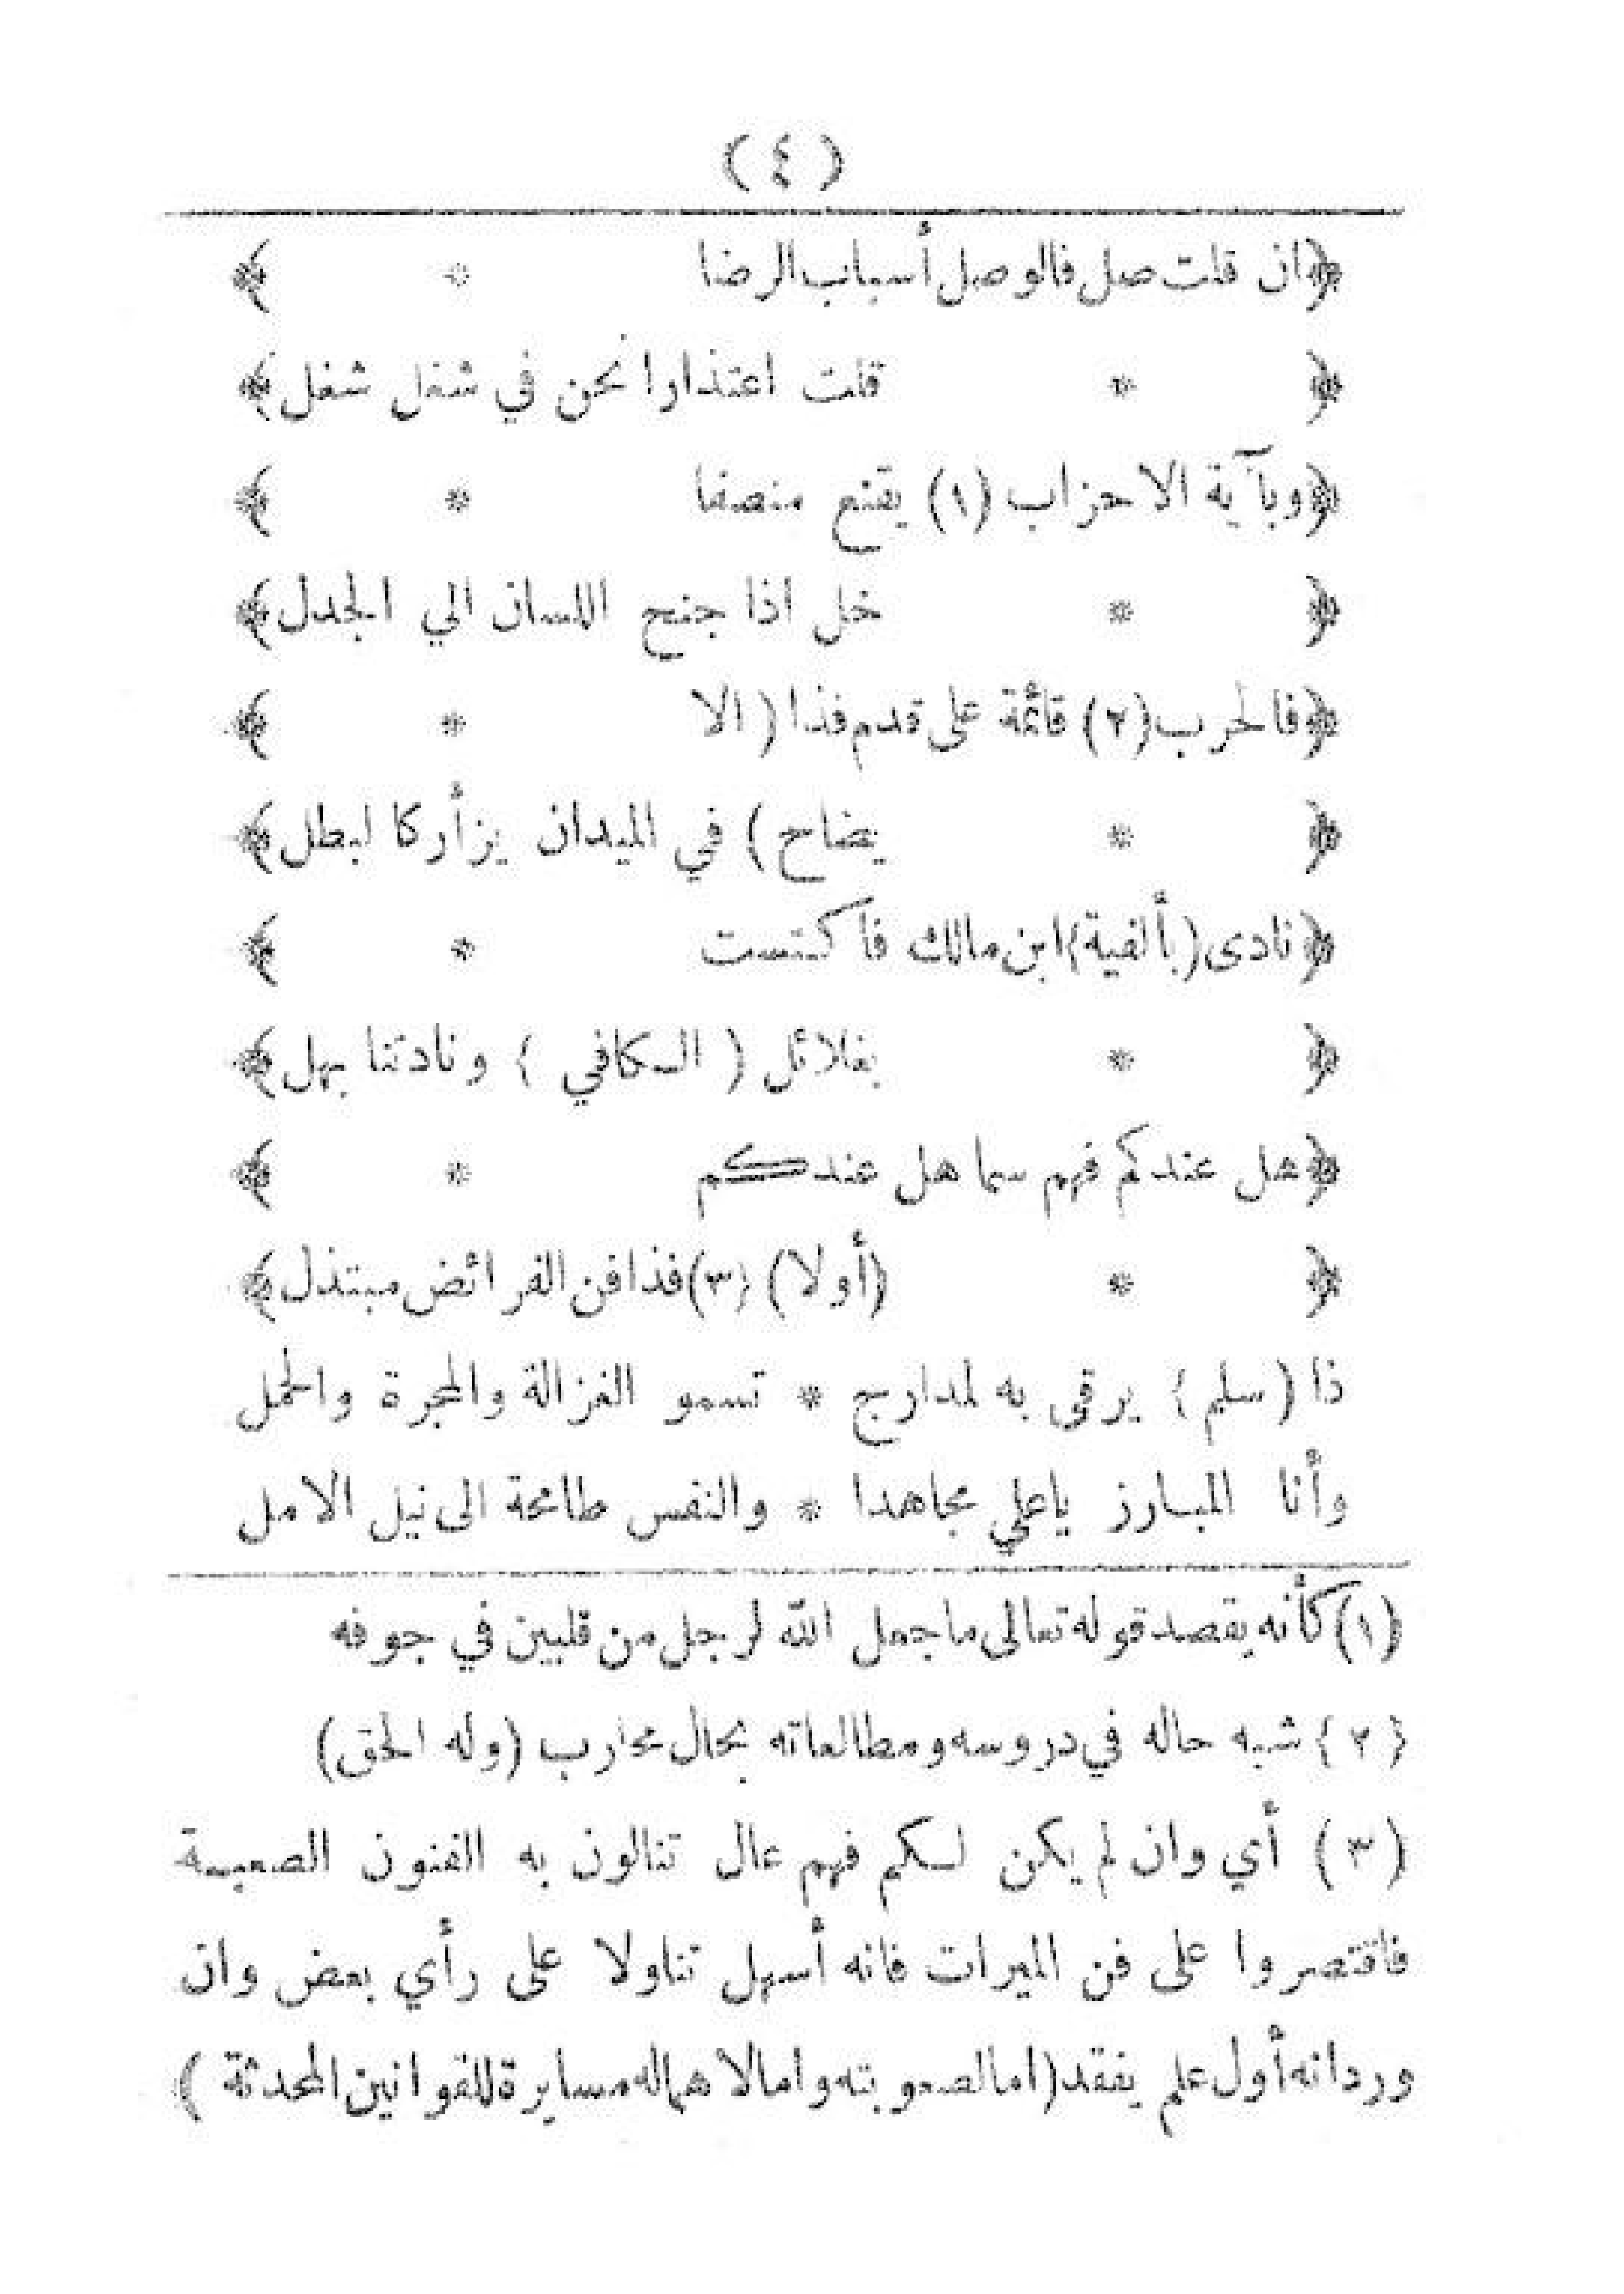 ( ٤ )
﴿ان قلت صل فالوصل أسباب الرضا * ﴾
﴿ * قلت اعتذارا نحن في شغل شغل﴾
﴿وبآية الاحزاب (١) يقنع منصفا * ﴾
﴿ * خل اذا جنح اللسان الي الجدل﴾
﴿فالحرب (٢) قائمة على قدم فذا ( الا * ﴾
﴿ * يضاح ) في الميدان يزأر كا لبطل﴾
﴿نادى (بألفية) ابن مالك فاكتست * ﴾
﴿ * بغلائل ( الكافي ) ونادتنا بهل﴾
﴿هل عندكم فهم سما هل عندكم * ﴾
﴿ * (أولا) (٣) فذا فن الفرائض مبتذل﴾
ذا (سلم) يرقى به لمدارج * تسمو الغزالة والمجرة والحمل
وأنا المبارز ياعلي مجاهدا * والنفس طامحة الى نيل الامل
(١) كأنه يقصد قوله تعالى ماجعل الله لرجل من قلبين في جوفه
(٢) شبه حاله في دروسه ومطالعاته بحال محارب (وله الحق)
(٣) أي وان لم يكن لكم فهم عال تنالون به الفنون الصعبة
فاقتصروا على فن الميراث فانه أسهل تناولا على رأي بعض وان
ورد انه أول علم يفقد (اما لصعوبته واما لاهماله مسايرة للقوانين المحدثة )